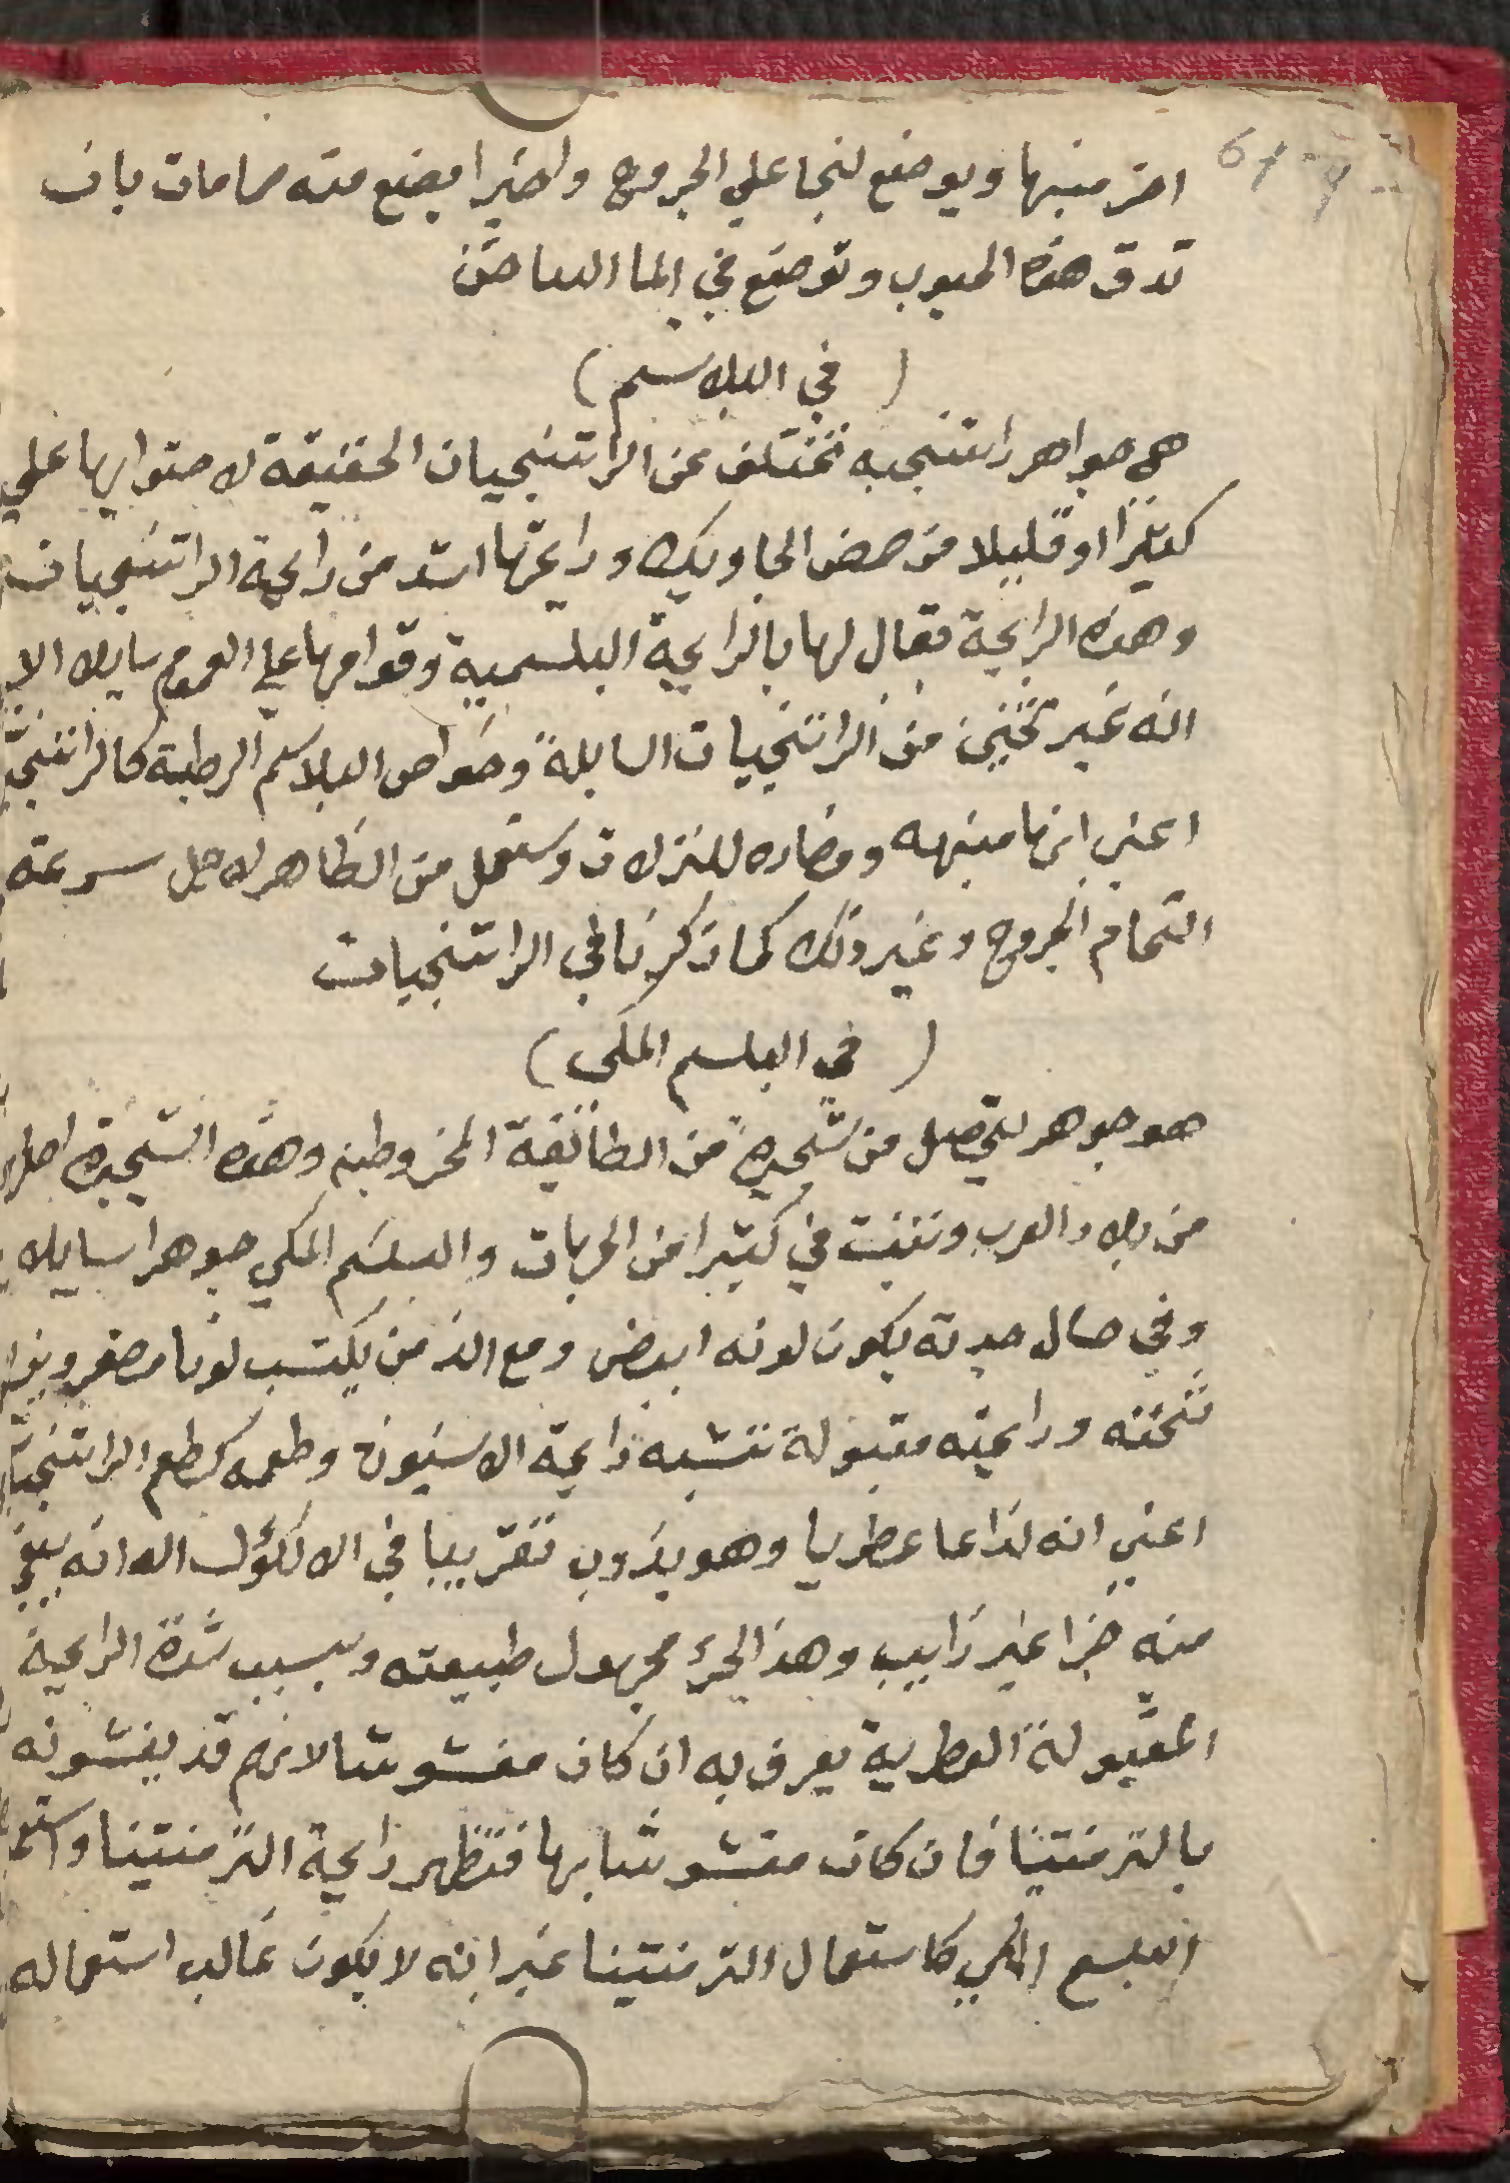 اخر منبها ويوضع لنجا علي الجروح واخيرا يصنع منه حمامات بان
تدق هذه الحبوب وتوضع في الما الساخن
( في البلاسم )
هي جواهر راتنجيه تختلف عن الراتنجيات الحقيقة لاحتوايها علي
كثيرا او قليلا من حمض الجاويك ورايحتها اشد من رايحة الراتنجيات
وهذه الرايحة يقال لها بالرايحة البلسمية وقوامها علي العموم سايلا الا
انه غير تخين من الراتنجيات السايلة وخواص البلاسم الرطبة كالراتنجيات
اعني انها منبهه ومضاده للنزلات وستعمل من الظاهر لاجل سرعته
التحام الجروح وغير ذلك كما ذكرنا في الراتنجيات
( في البلسم المكي )
هو جوهر يتحصل من شجيرة من الطائفة المخروطيه وهذه الشجيرة اصلها
من بلاد العرب وتنبت في كثيرا من الجهات والبلسم المكي جوهرا سايلا
وفي حال جدته يكون لونه ابيض ومع الزمن يكتسب لونا مصفر ويزيد
تخنه ورايحته مقبولة تشبه رايحة الانيسون وطعمه كطعم الراتنجيات
اعني انه لذاعا عطريا وهو يذوب تقريبا في الالكؤل الا انه يبقي
منه جزا غير ذايب وهذ الجزء مجهول طبيعته وبسبب شدة الرايحة
المقبولة العطرية يعرف به ان كان مغشوشا لانهم قد يغشونه
بالترمنتينا فان كان مغشوشا بها فتظهر رايحة الترمنتينا واستعمال
البلسم المكي كاستعمال الترمنتينا غير انه لا يكون غالب استعماله